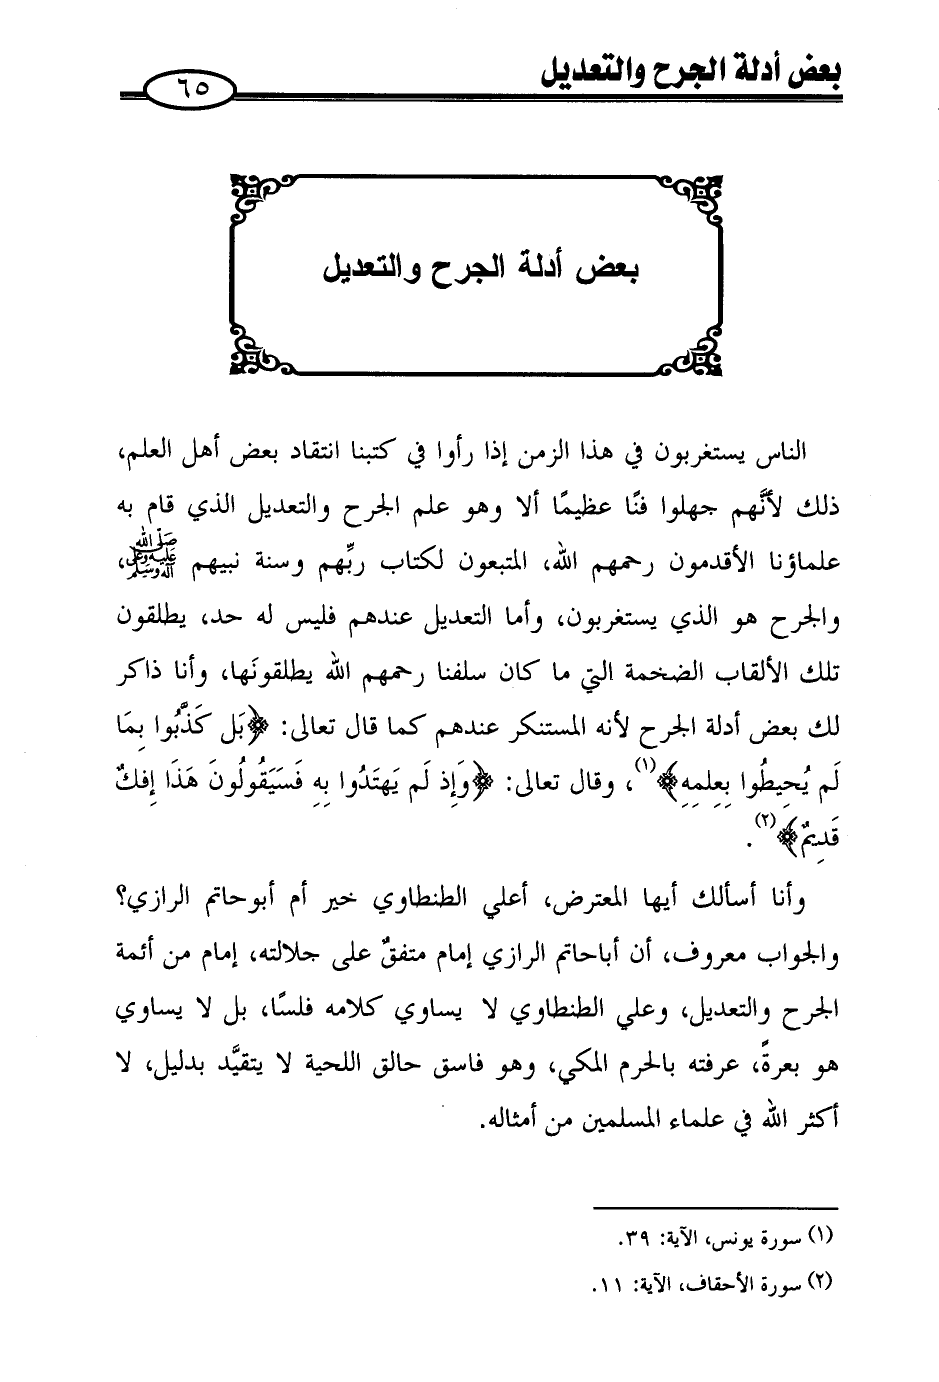 بعض أدلة الجرح والتعديل
٦٥
بعض أدلة الجرح والتعديل
الناس يستغربون في هذا الزمن إذا رأوا في كتبنا انتقاد بعض أهل العلم،
ذلك لأنَّهم جهلوا فنًّا عظيمًا ألا وهو علم الجرح والتعديل الذي قام به
علماؤنا الأقدمون رحمهم الله، المتبعون لكتاب ربِّهم وسنة نبيهم صلى الله عليه وعلى آله وسلم،
والجرح هو الذي يستغربون، وأما التعديل عندهم فليس له حد، يطلقون
تلك الألقاب الضخمة التي ما كان سلفنا رحمهم الله يطلقونَها، وأنا ذاكر
لك بعض أدلة الجرح لأنه المستنكر عندهم كما قال تعالى: ﴿بَل كَذَّبُوا بِمَا
لَم يُحِيطُوا بِعِلمِهِ﴾(١)، وقال تعالى: ﴿وَإِذ لَم يَهتَدُوا بِهِ فَسَيَقُولُونَ هَذَا إِفكٌ
قَدِيمٌ﴾(٢).
وأنا أسألك أيها المعترض، أعلي الطنطاوي خير أم أبوحاتم الرازي؟
والجواب معروف، أن أباحاتم الرازي إمام متفقٌ على جلالته، إمام من أئمة
الجرح والتعديل، وعلي الطنطاوي لا يساوي كلامه فلسًا، بل لا يساوي
هو بعرةً، عرفته بالحرم المكي، وهو فاسق حالق اللحية لا يتقيَّد بدليل، لا
أكثر الله في علماء المسلمين من أمثاله.
(١) سورة يونس، الآية: ٣٩.
(٢) سورة الأحقاف، الآية: ١١.